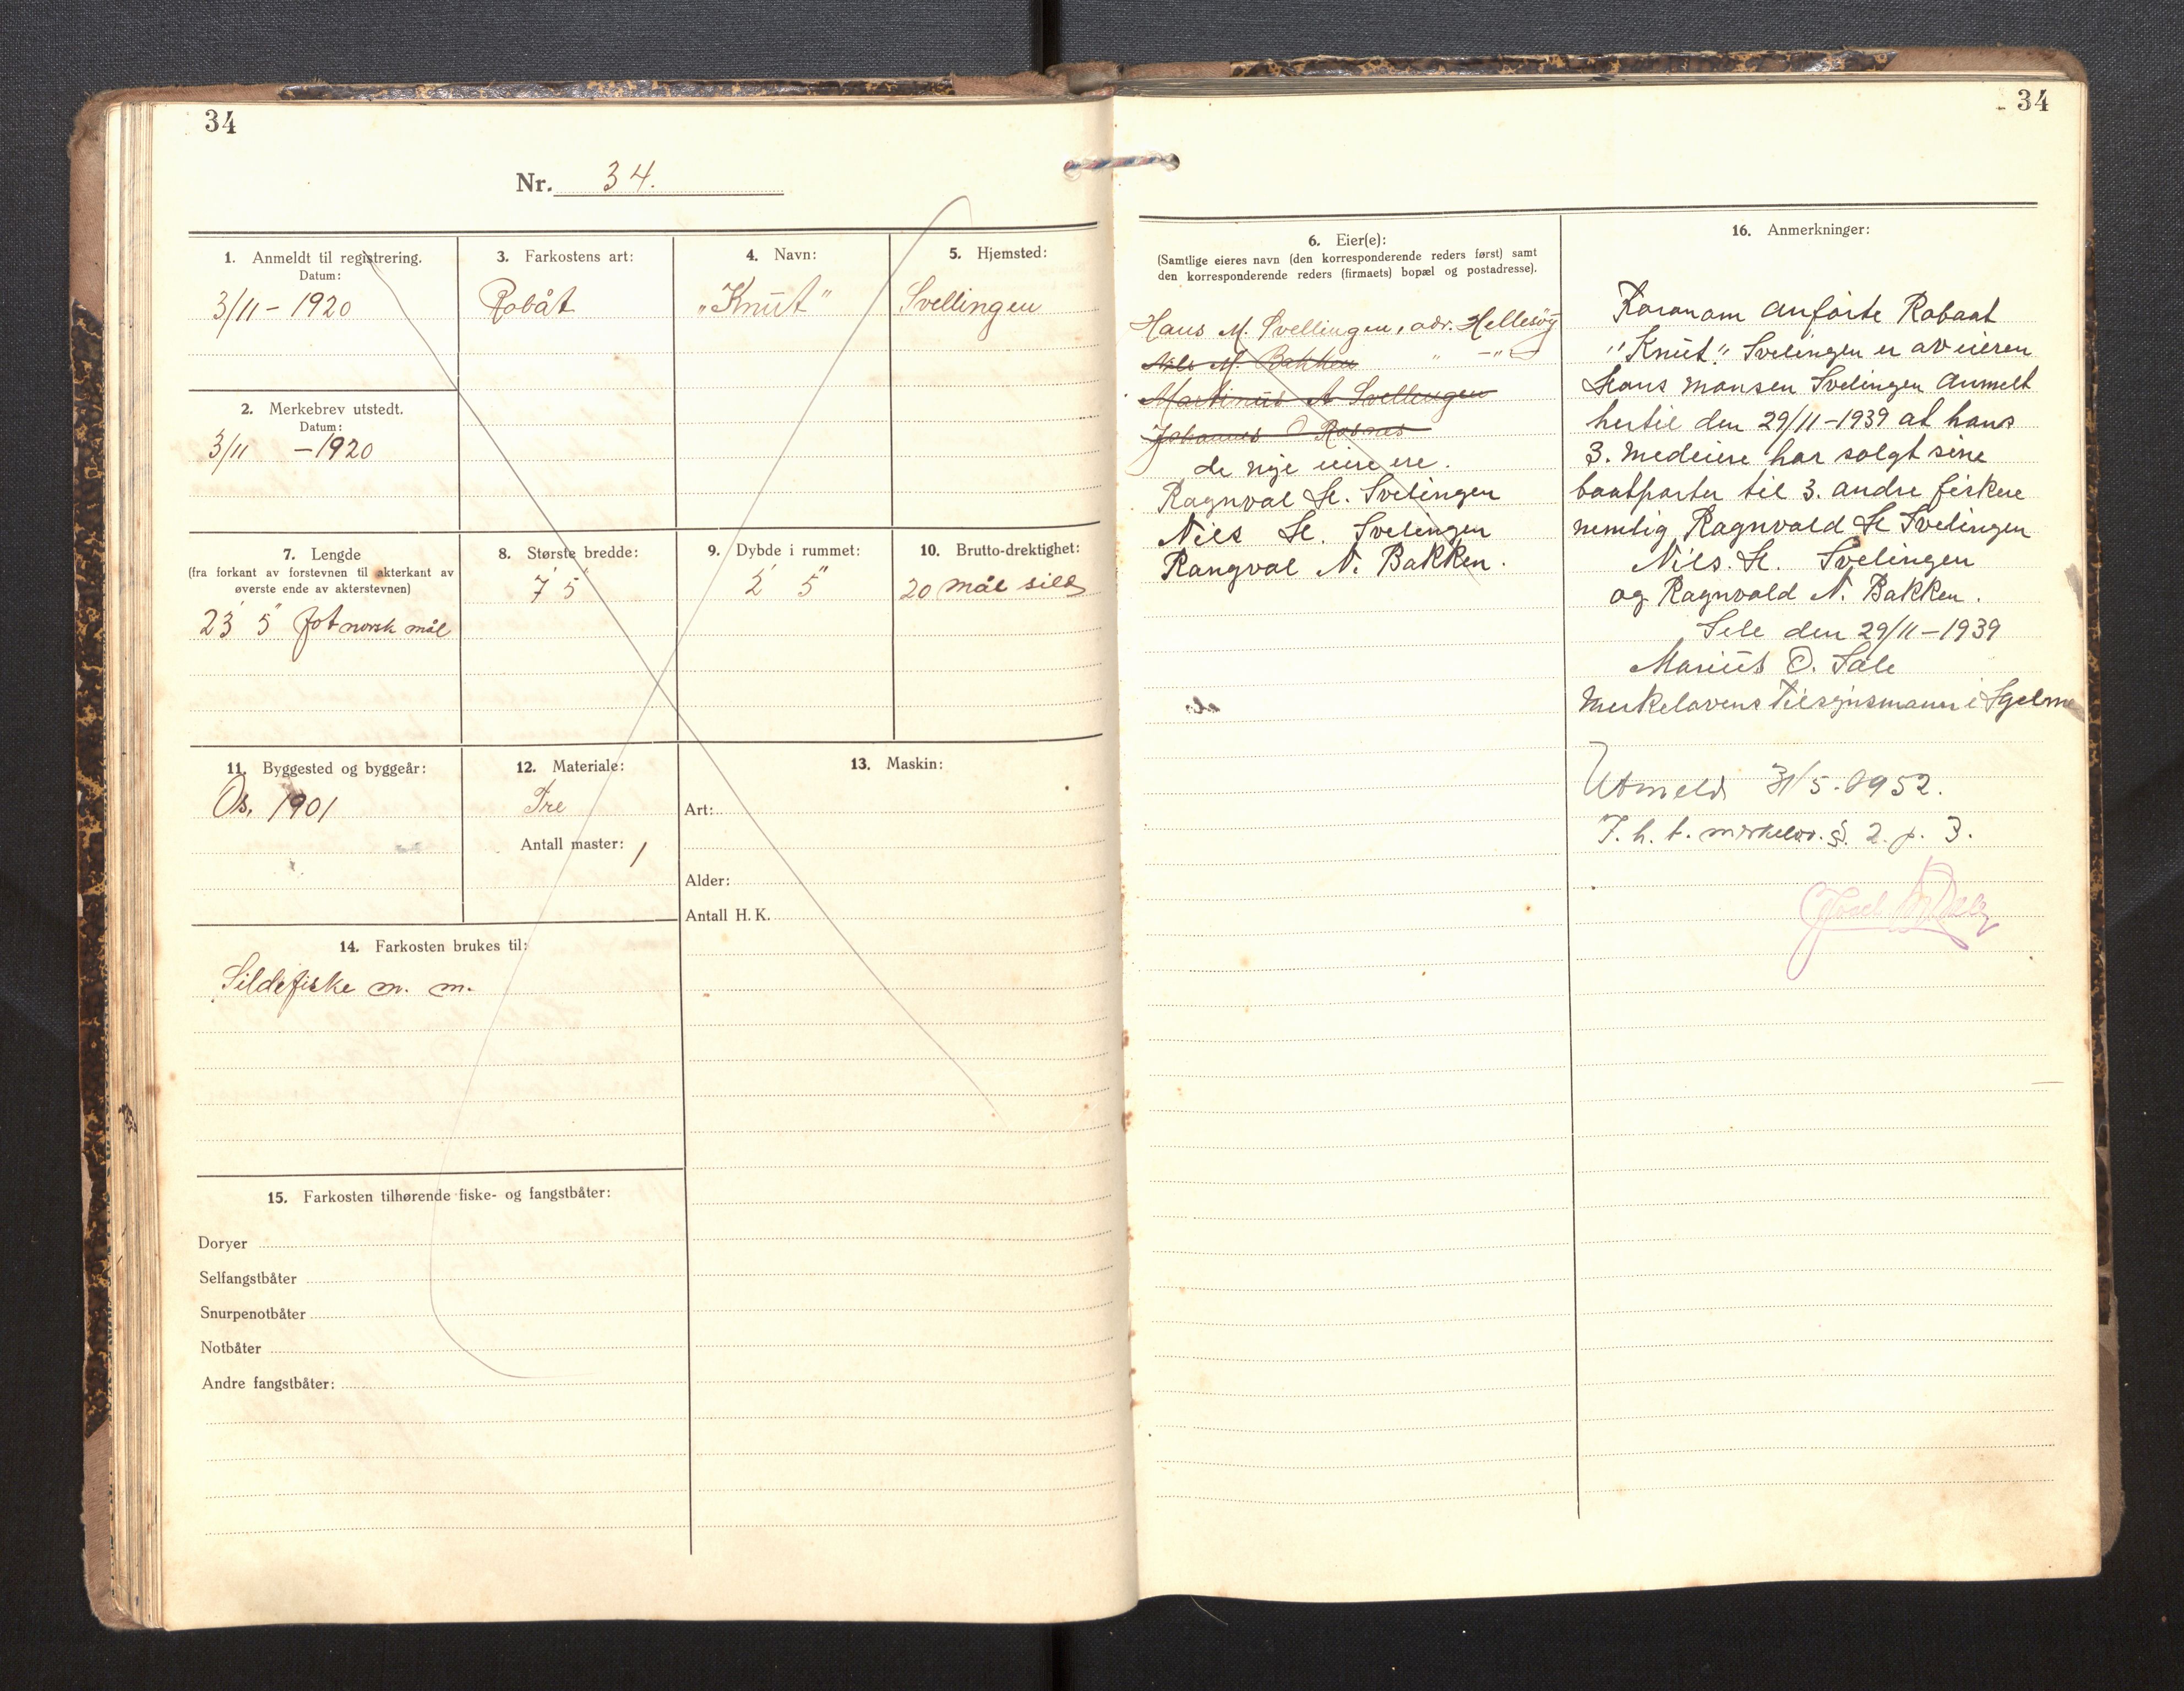 34
Nr. 34.
1. Anmeldt til registrering.
Datum:
3/11 - 1920
3. Farkostens art:
Robåt
4. Navn:
"Knut"
5. Hjemsted:
Svellingen
2. Merkebrev utstedt.
Datum:
3/11 - 1920
7. Lengde
(fra forkant av forstevnen til akterkant av
øverste ende av akterstevnen)
23' 5" fot norsk mål
8. Største bredde:
7' 5"
9. Dybde i rummet:
2' 5"
10. Brutto-drektighet:
20 mål sild
11. Byggested og byggeår:
Os, 1901
12. Materiale:
Tre
Antall master: 1
13. Maskin:
Art:
Alder:
Antall H. K.
14. Farkosten brukes til:
Sildefiske m. m.
15. Farkosten tilhørende fiske- og fangstbåter:
Doryer
Selfangstbåter
Snurpenotbåter
Notbåter
Andre fangstbåter:
34
6. Eier(e):
(Samtlige eieres navn (den korresponderende reders først) samt
den korresponderende reders (firmaets) bopæl og postadresse).
Hans M. Svellingen, adr. Hellesøy
Nils M. Bakken " -"-
Martinus A Svellingen
Johannes O Rosnes
de nye eiere ere.
Ragnval H. Svelingen
Nils H. Svelingen
Rangval N. Bakken.
16. Anmerkninger:
Foranom anførte Robaat
"Knut" Svelingen er av eieren
Hans Monsen Svelingen Anmelt
hertil den 29/11-1939 at hans
3. Medeiere har solgt sine
baatparter til 3. andre fiskere
nemlig Ragnvald H Svelingen
Nils. H. Svelingen
og Ragnvald N. Bakken.
Sele den 29/11-1939
Marius O. Sæle
Merkelovens Tilsynsmann i Hjelme
Utmeld 31/5. 1952.
I. h. t. merkelov. §. 2. p. 3.